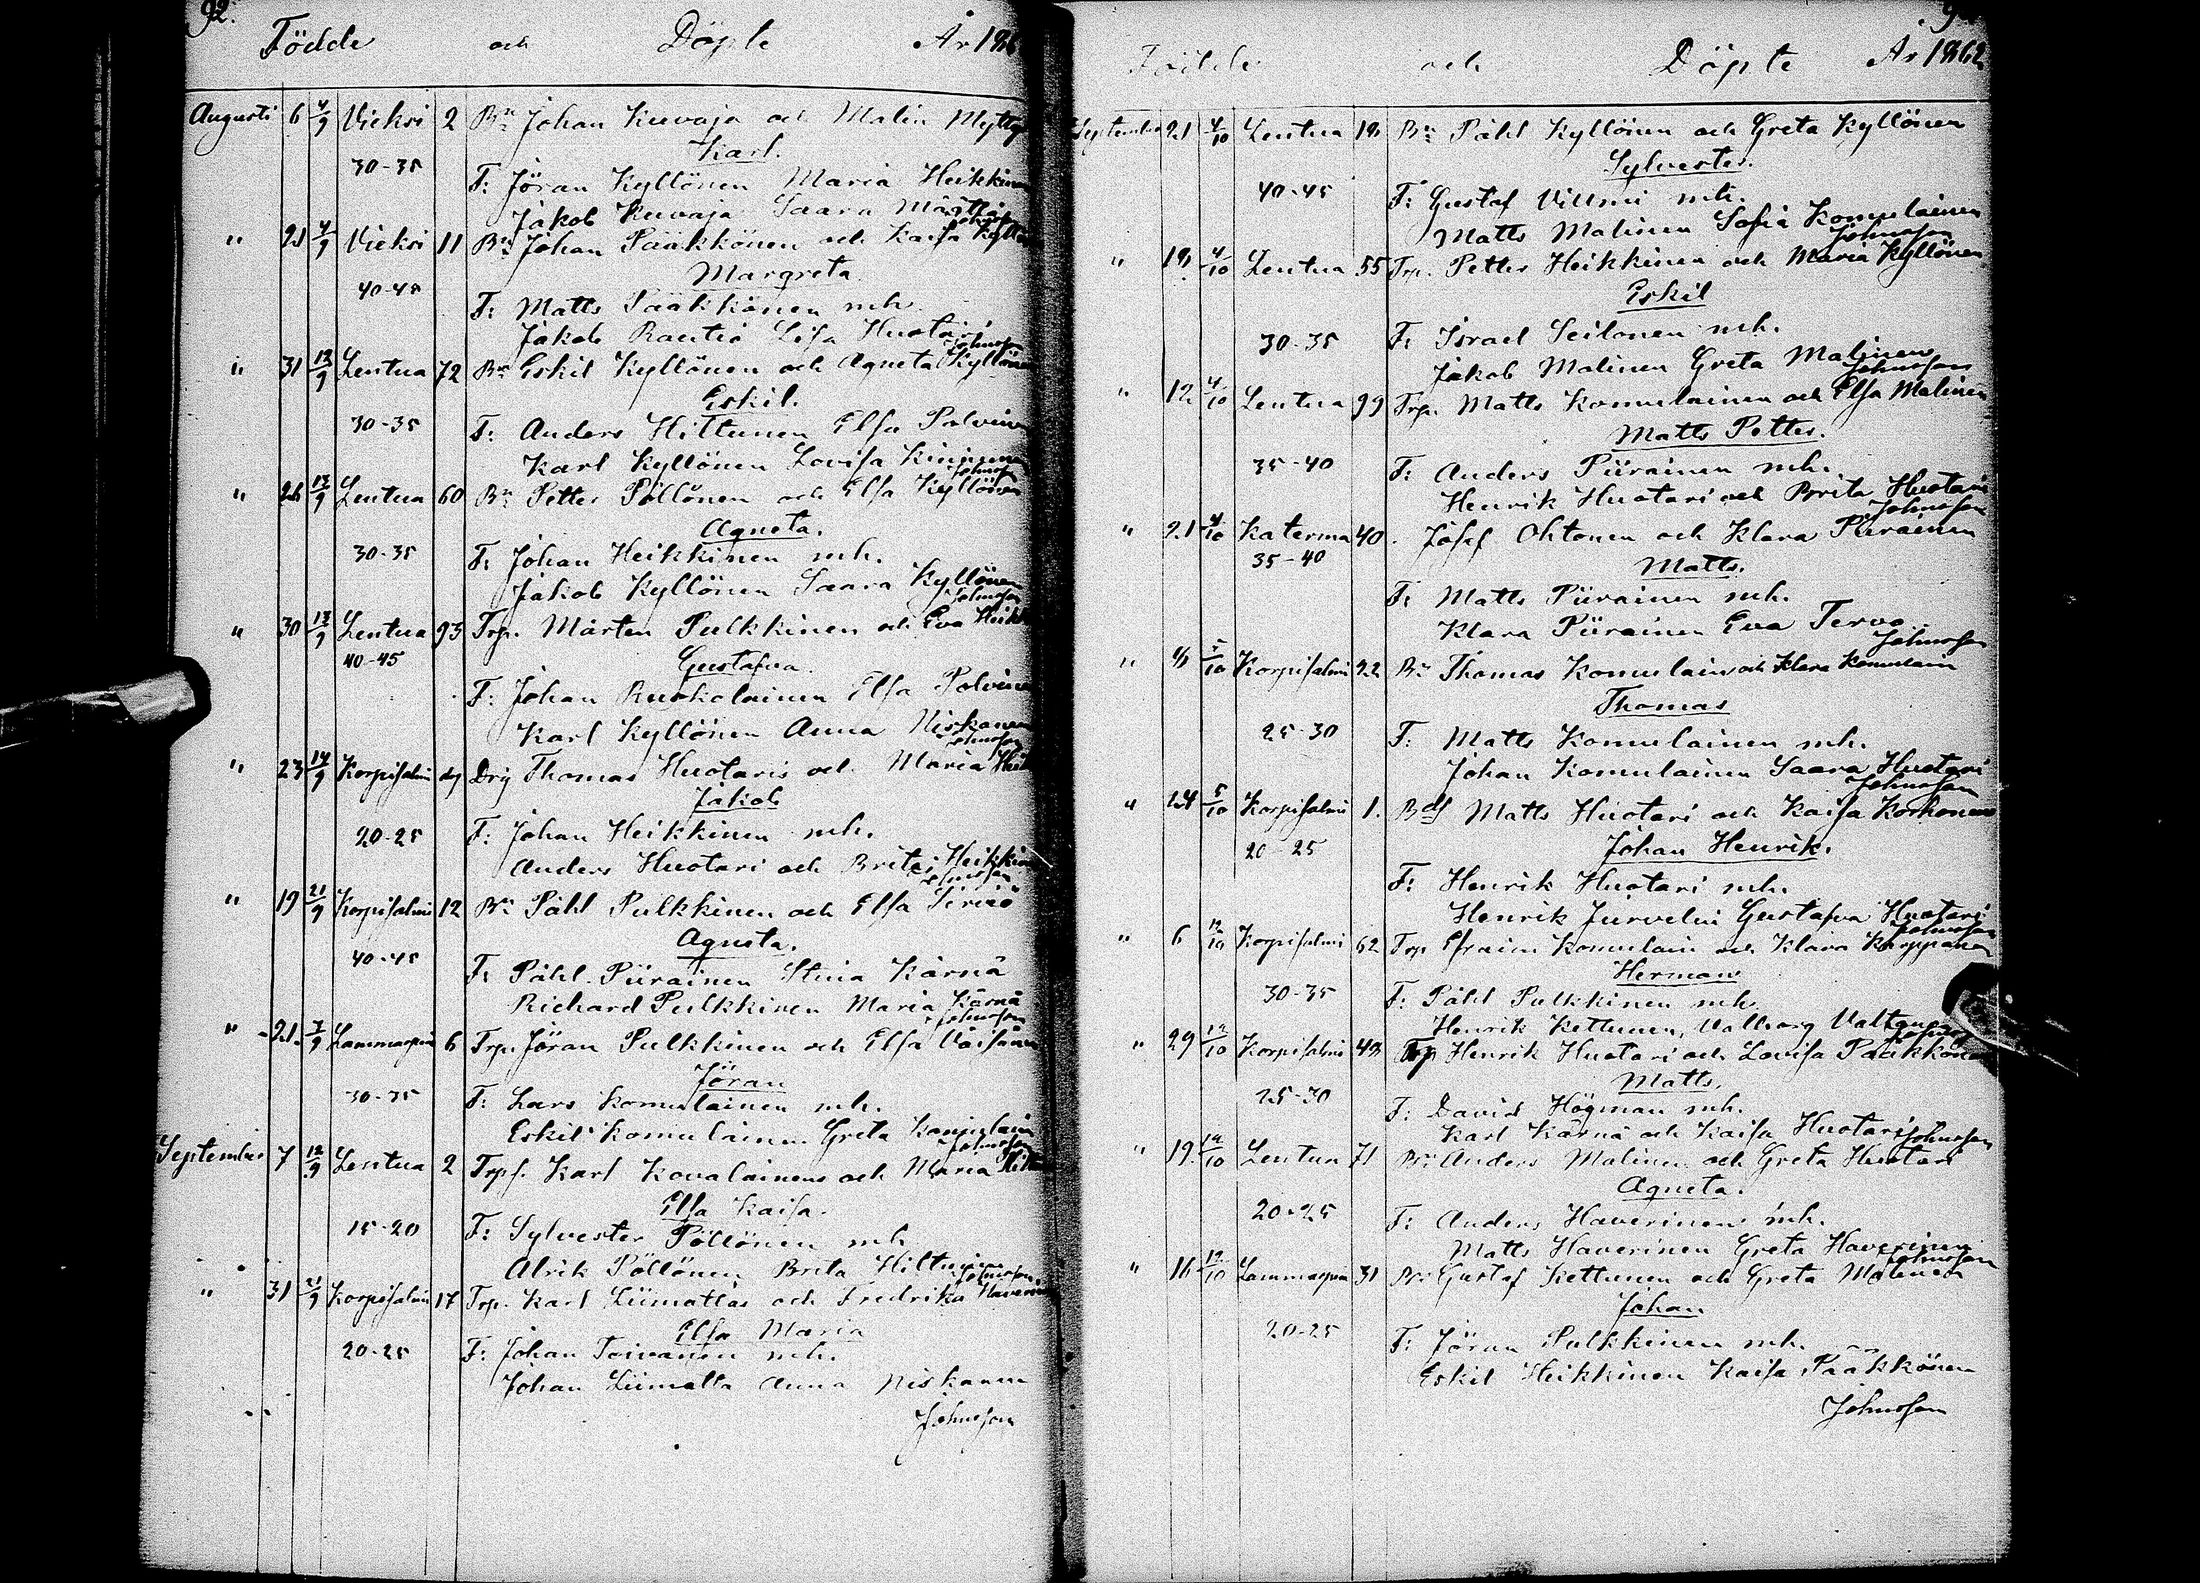 92.
Födde och Döpte År 186
Augusti 6 4/9 Vieksi 2 Bn Johan Kuvaja och Malin Mylly
Karl.
30-35 F: Jöran Kyllönen Maria Heikkinen
Jakob Kuvaja Saara Määttä
Johnsson
" 21 4/9 Vieksi 11 Bn Johan Pääkkönen och Kaisa Kyllön
Margreta
40-45 F: Matts Pääkkönen mh.
Jakob Rautio Lisa Huotari
Johnsson
" 31 13/9 Lentua 72 Bn Eskil Kyllönen och Agneta Kyllönen
Eskil.
30-35 F: Anders Hiltunen Elsa Polvinen
Karl Kyllönen Lovisa Kinnunen
Johnsson
" 26 13/9 Lentua 60 Bn Petter Pöllönen och Elsa Kyllönen
Agneta.
30-35 F: Johan Heikkinen mh.
Jakob Kyllönen Saara Kyllönen
Johnsson
" 30 13/9 Lentua 93 Trp. Mårten Pulkkinen och Eva Heikk
40-45 Gustafva
F: Johan Ruokolainen Elsa Polvinen
Karl Kyllönen Anna Niskanen
Johnsson
" 23 14/9 Korpisalmi dg Drg Thomas Huotaris och Maria Heik
Jakob
20-25 F: Johan Heikkinen mh.
Anders Huotari och Brita Heikkinen
Johnsson
" 19 21/9 Korpisalmi 12 Bn Påhl Pulkkinen och Elsa Sirviö
Agneta.
40-45 F: Påhl Piirainen Stina Kärnä
Richard Pulkkinen Maria Kärnä
Johnsson
" 21 7/9 Lammaspää 6 Trp. Jöran Pulkkinen och Elsa Väisänen
Jöran
30-35 F: Lars Komulainen mh.
Eskil Komulainen Greta Komulain
Johnsson
September 7 12/9 Lentua 2 Trpf. Karl Kovalainens och Maria Hilt
Elsa Kaisa.
15-20 F: Sylvester Pöllönen mh
Alrik Pöllönen Brita Hiltunen
Johnsson
" 31 21/9 Korpisalmi 17 Trp. Karl Liimattas och Fredrika Haverin
Elsa Maria
20-25 F: Johan Toivanen mh.
Johan Liimatta Anna Niskanen
Johnsson
Födde och Döpte År 1862
September 21 4/10 Lentua 18 Bn Påhl Kyllönen och Greta Kyllönen
Sylvester.
40-45 F: Gustaf Villmi mh.
Matts Malinen Sofia Komulainen
Johnsson
" 18 4/10 Lentua 55 Trp. Petter Heikkinen och Maria Kyllönen
Eskil
30-35 F: Israel Seilonen mh.
Jakob Malinen Greta Malinen
Johnsson
" 12 4/10 Lentua 99 Trp. Matts Komulainen och Elsa Malinen
Matts Petter.
35-40 F: Anders Piirainen mh.
Henrik Huotari och Brita Huotari
Johnsson
" 21 4/10 Katerma 40 Josef Ohtonen och Klara Piirainen
35-40 Matts.
F: Matts Piirainen mh.
Klara Piirainen Eva Tervo
Johnsson
" 8 5/10 Korpisalmi 22 Bn Thomas Komulain och Klara Komulain
Thomas
25-30 F: Matts Komulainen mh.
Johan Komulainen Saara Huotari
Johnsson
" 24 5/10 Korpisalmi 1. Bdf Matts Huotari och Kaisa Korhonen
20-25 Johan Henrik.
F: Henrik Huotari mh.
Henrik Jurvelin Gustafva Huotari
Johnsson
" 6 12/10 Korpisalmi 62 Trp Efraim Komulain och Klara Karppanen
Herman
30-35 F: Påhl Pulkkinen mh
Henrik Kettunen, Valborg
Johnsson
" 29 12/10 Korpisalmi 48 Trp Henrik Huotari och Lovisa Pääkkönen
Matts.
25-30 F: David Högman mh.
Karl Kärnä och Kaisa Huotari
Johnsson
" 19 19/10 Lentua 71 Bn Anders Malinen och Greta Huotari
Agneta.
20-25 F: Anders Haverinen mh.
Matts Haverinen Greta Haverinen
Johnsson
" 16 19/10 Lammaspää 31 Bn Gustaf Kettunen och Greta Malinen
Johan
20-25 F: Jöran Pulkkinen mh.
Eskil Heikkinen Kaisa Pääkkönen
Johnsson